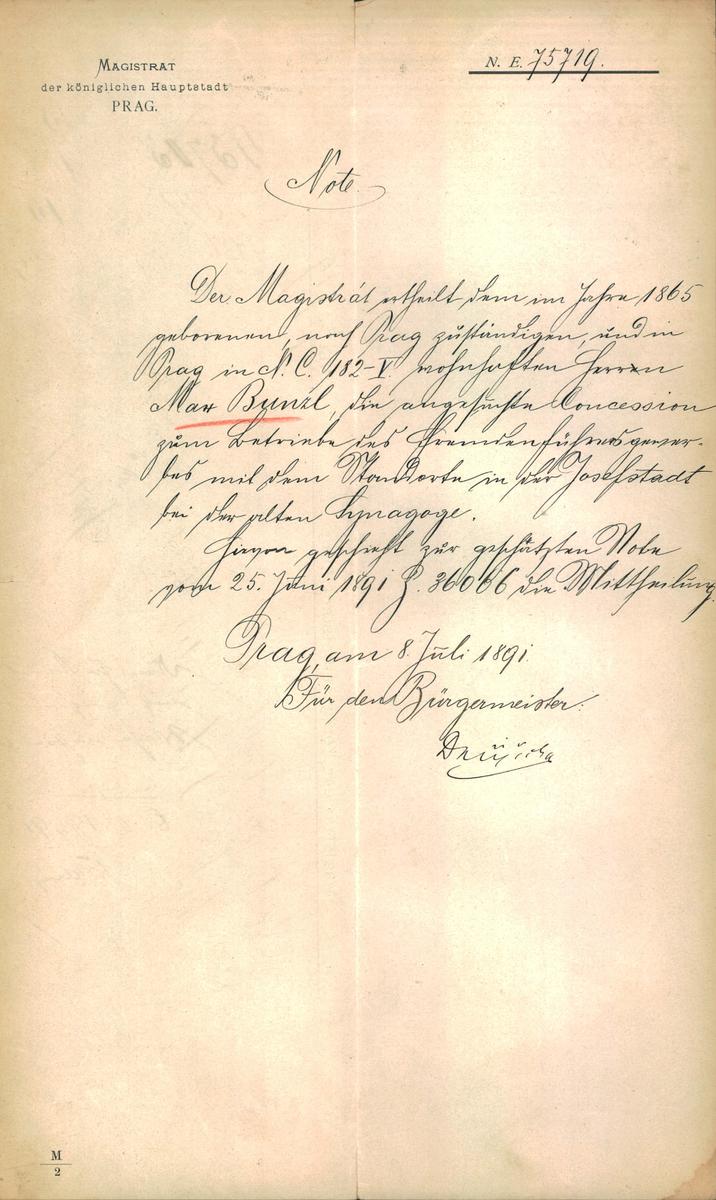 MAGISTRAT
der königlichen Hauptstadt
PRAG.
N. E. 75719.
Note
Der Magistrat ertheilt dem im Jahre 1865
geborenen, nach Prag zuständigen, und in
Prag in N. C. 182-V wohnhaften Herrn
Max Bunzl, die angesuchte Concession
zum Betriebe des Fremdenführergewer-
bes mit dem Standorte in der Josefstadt
bei der alten Synagoge.
Hievon geschieht zur geschätzten Note
vom 25. Juni 1891 Z. 36066 die Mittheilung.
Prag, am 8. Juli 1891.
Für den Bürgermeister:
M
2